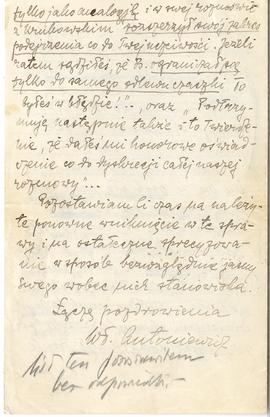 tylko jako analogję i w swej rozmowie
z Wrubowskim "rozszerzył swój zakres
podejrzenia co do Twej uczciwości. Jeżeli
zatem sądziłeś, że B. ograniczał się
tylko do samego odlewu czaszki to
byłeś w błędzie!"... oraz "Podtrzy-
muję następnie także i to Twierdze-
nie, że dałeś mi honorowe oświad-
czenie co do dyskrecji całej naszej
rozmowy"...
Pozostawiam Ci czas na należy-
te ponowne wniknięcie w tę spra-
wę i na ostateczne sprecyzowa-
nie w sposób bezwzględnie jasny
Swego wobec mnie stanowiska.
Łączę pozdrowienia
Wł. Antoniewicz
List ten pozostawiłem
bez odpowiedzi